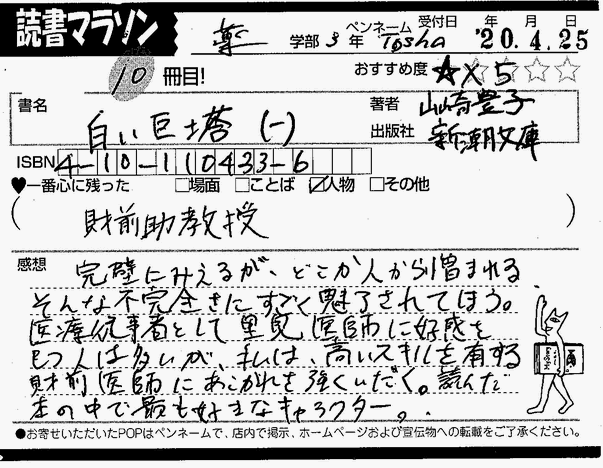 読書マラソン
薬 学部 3 年 ペンネーム Tosha 受付日 '20.年4.月25日
10 冊目!
おすすめ度 ★×5☆☆☆
書名 白い巨塔 (一)
著者 山崎豊子
出版社 新潮文庫
ISBN 4-10-110433-6
♥一番心に残った □場面 □ことば ☑人物 □その他
( 財前助教授 )
感想 完璧にみえるが、どこか人から憎まれる、
そんな不完全さにすごく魅了されてしまう。
医療従事者として里見医師に好感を
もつ人は多いが、私は、高いスキルを有する
財前医師にあこがれを強くいだく。読んだ
本の中で最も好きなキャラクター。
●お寄せいただいたPOPはペンネームで、店内で掲示、ホームページおよび宣伝物への転載をご了承ください。